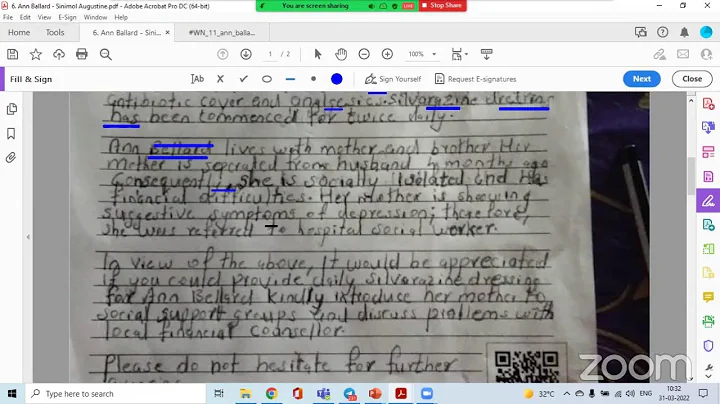 6. Ann Ballard - Sinimol Augustine.pdf - Adobe Acrobat Pro DC (64-bit)
You are screen sharing
LIVE
Stop Share
File Edit View E-Sign Window Help
Home
Tools
6. Ann Ballard - Sini...
#WN_11_ann_balla...
1 / 2
100%
Fill & Sign
Ab
Sign Yourself
Request E-signatures
Next
Close
antibiotic cover and
has been commenced for twice daily.
Ann Ballard lives with mother and brother. Her
mother is seperated from husband
Consequently, she is socially isolated and has
financial difficulties. Her mother is showing
suggestive symptoms of depression; therefore,
she was referred to hospital social worker.
In view of the above, it would be appreciated
if you could provide daily Silvarazine dressing
for Ann Bellard kindly introduce her mother to
social support groups and discuss problems with
local financial counsellor.
Please do not hesitate for further
zoom
Type here to search
32°C
ENG
10:32
31-03-2022